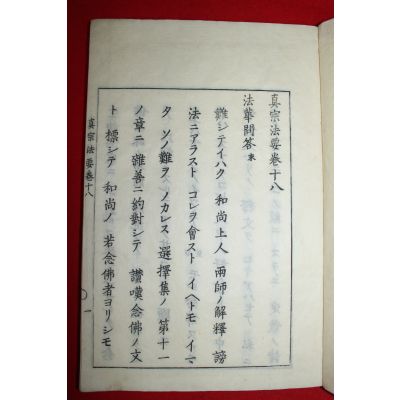 真宗法要巻十八
法華問答 末
難シテイハク 和尚上人 両師ノ解釋 謗
法ニアラスト コレヲ會スト イヘトモ イマ
タ ソノ難ヲ ノカレス 選擇集ノ 第十一
ノ章ニ 雜善ニ約對シテ 讃嘆念佛ノ文
ト 標シテ 和尚ノ 若念佛者ヨリシモ
真宗法要巻十八
一